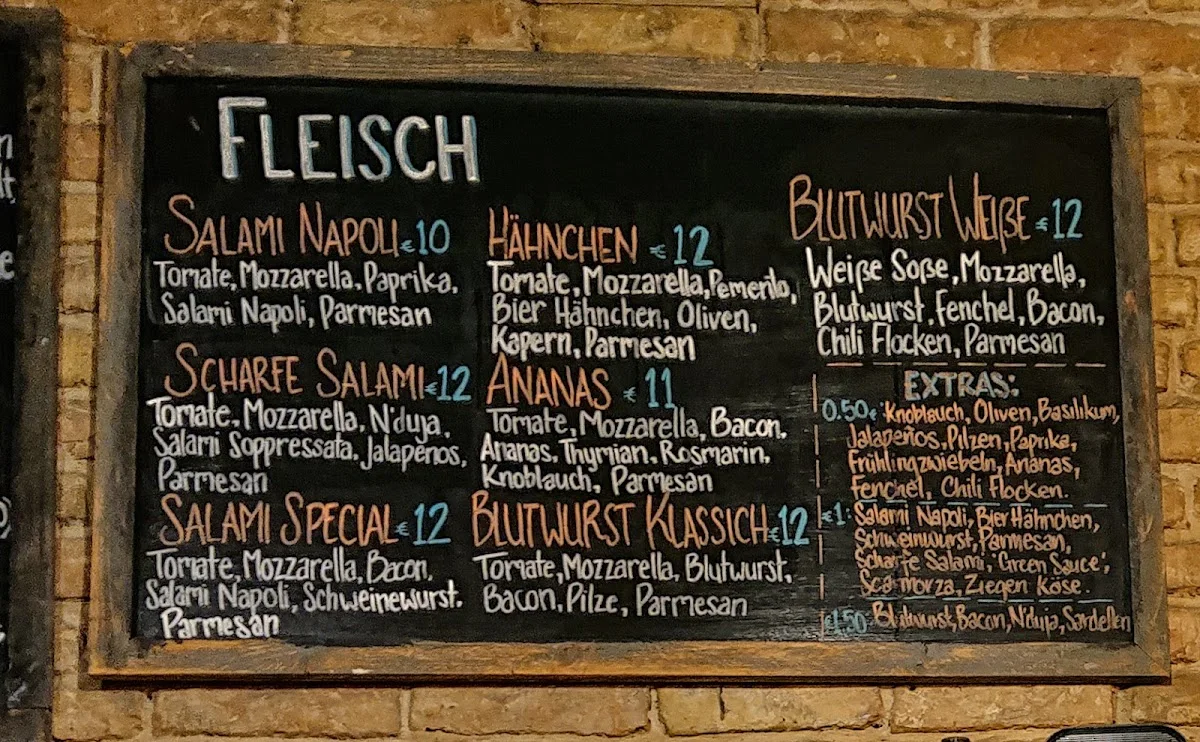 FLEISCH
SALAMI NAPOLI €10
Tomate, Mozzarella, Paprika,
Salami Napoli, Parmesan
SCHARFE SALAMI €12
Tomate, Mozzarella, N'duja,
Salami Soppressata, Jalapeños,
Parmesan
SALAMI SPECIAL €12
Tomate, Mozzarella, Bacon,
Salami Napoli, Schweinewurst,
Parmesan
HÄHNCHEN €12
Tomate, Mozzarella, Pemerilo,
Bier Hähnchen, Oliven,
Kapern, Parmesan
ANANAS €11
Tomate, Mozzarella, Bacon,
Ananas, Thymian, Rosmarin,
Knoblauch, Parmesan
BLUTWURST KLASSICH €12
Tomate, Mozzarella, Blutwurst,
Bacon, Pilze, Parmesan
BLUTWURST WEIßE €12
Weiße Soße, Mozzarella,
Blutwurst, Fenchel, Bacon,
Chili Flocken, Parmesan
EXTRAS:
0.50€ Knoblauch, Oliven, Basilikum,
Jalapeños, Pilzen, Paprika,
Frühlingzwiebeln, Ananas,
Fenchel, Chili Flocken.
€1: Salami Napoli, Bier Hähnchen,
Schweinwurst, Parmesan,
Scharfe Salami, 'Green Sauce',
Scamorza, Ziegen Köse.
€1,50: Blutwurst, Bacon, N'duja, Sardellen